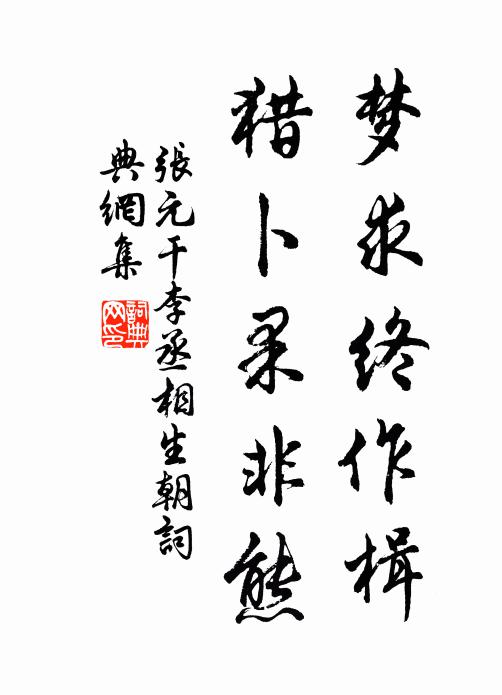 梦求终作楫
猎卜果非熊
張元干李丞相生朝詞
典網集
詞典網印